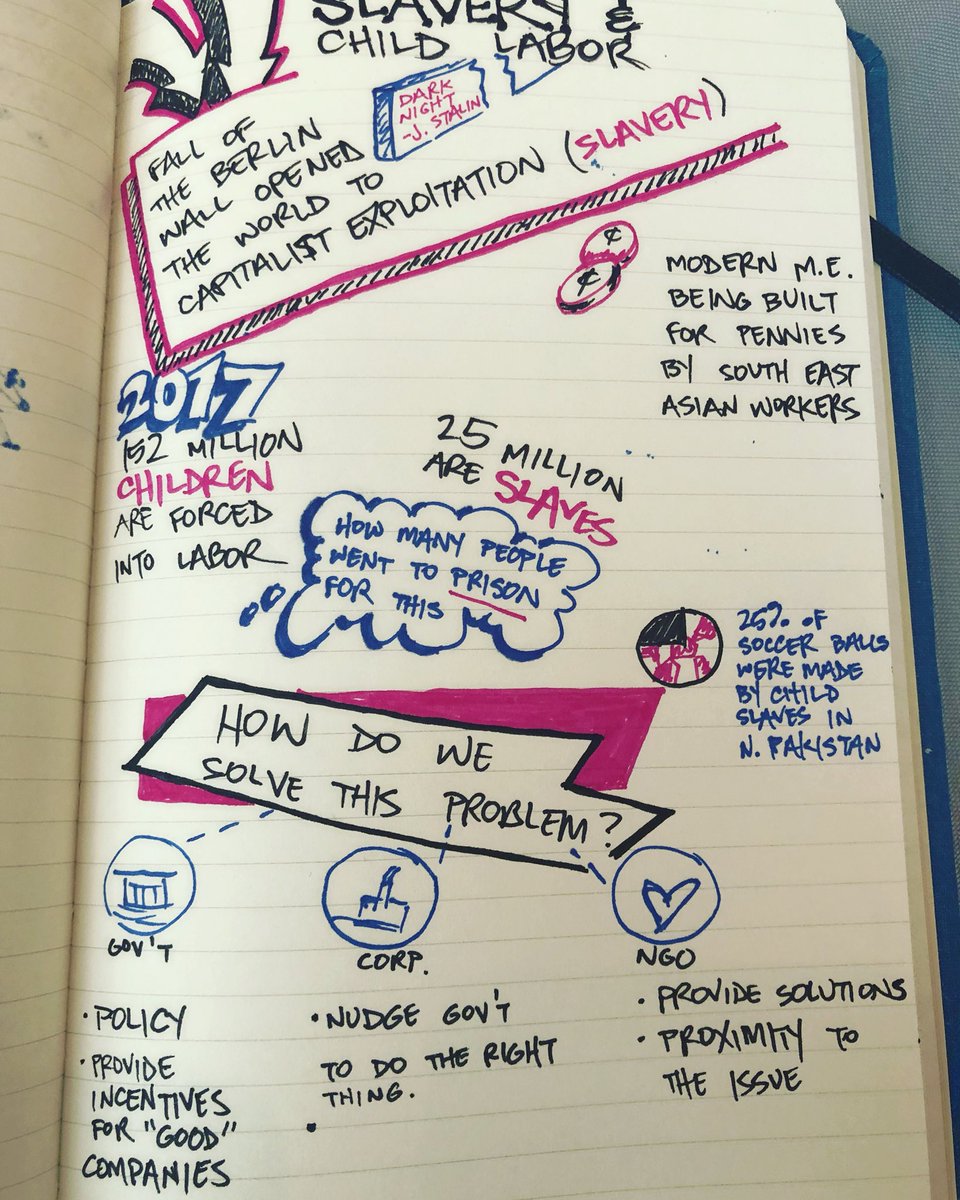 SLAVERY &
CHILD LABOR
DARK
NIGHT
-J. STALIN
FALL OF
THE BERLIN
WALL OPENED
THE WORLD TO
CAPITALI$T EXPLOITATION (SLAVERY)
¢
¢
MODERN M.E.
BEING BUILT
FOR PENNIES
BY SOUTH EAST
ASIAN WORKERS
2017
152 MILLION
CHILDREN
ARE FORCED
INTO LABOR
25 MILLION
ARE SLAVES
HOW MANY PEOPLE
WENT TO PRISON
FOR THIS
25% OF
SOCCER BALLS
WERE MADE
BY CHILD
SLAVES IN
N. PAKISTAN
HOW DO WE
SOLVE THIS PROBLEM?
GOV'T
· POLICY
· PROVIDE
INCENTIVES
FOR "GOOD"
COMPANIES
CORP.
· NUDGE GOV'T
TO DO THE RIGHT
THING.
·
NGO
· PROVIDE SOLUTIONS
· PROXIMITY TO
THE ISSUE